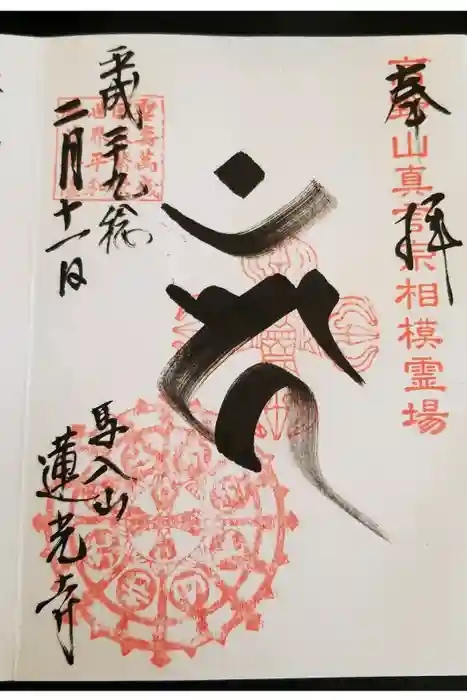 奉拝
高野山真言宗相模霊場
𑖮𑖳𑖽
平成二十九稔
二月十一日
馬入山
蓮光寺